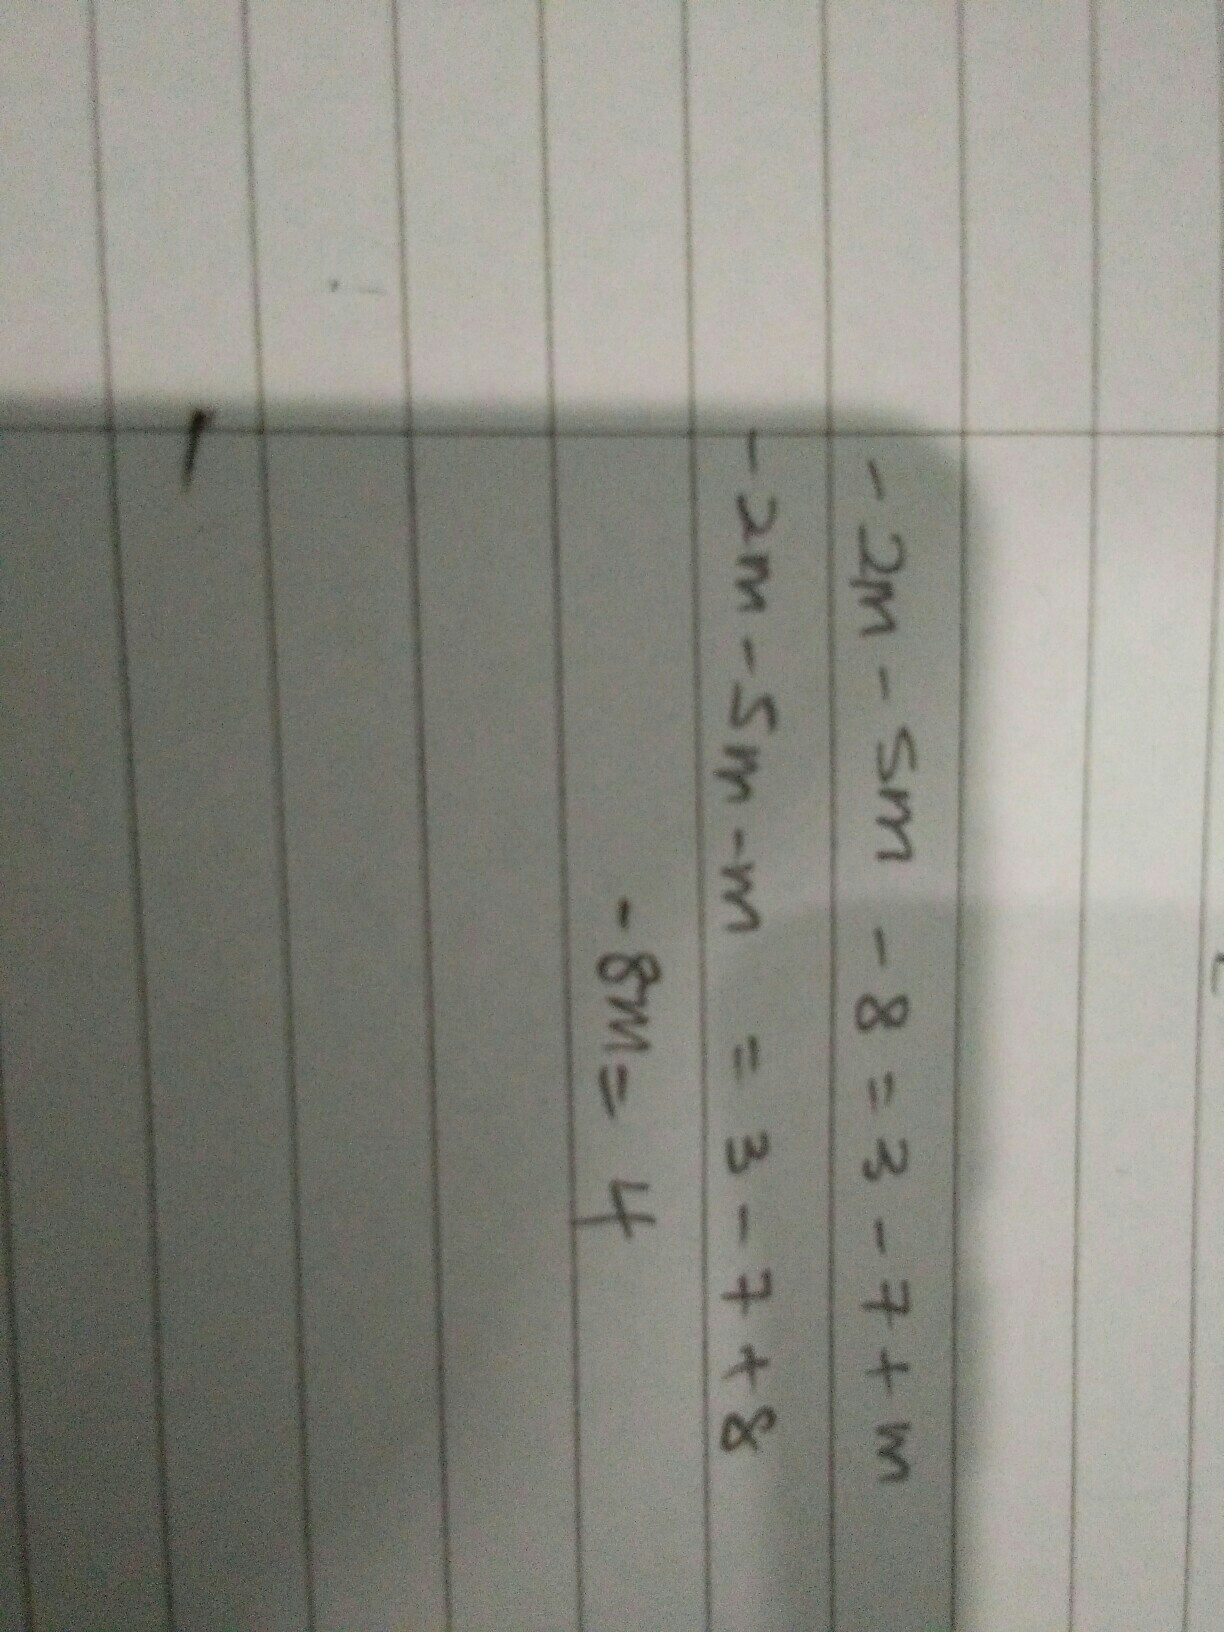 - 2m - 5m - 8 = 3 - 7 + m
- 2m - 5m - m = 3 - 7 + 8
- 8m = 4